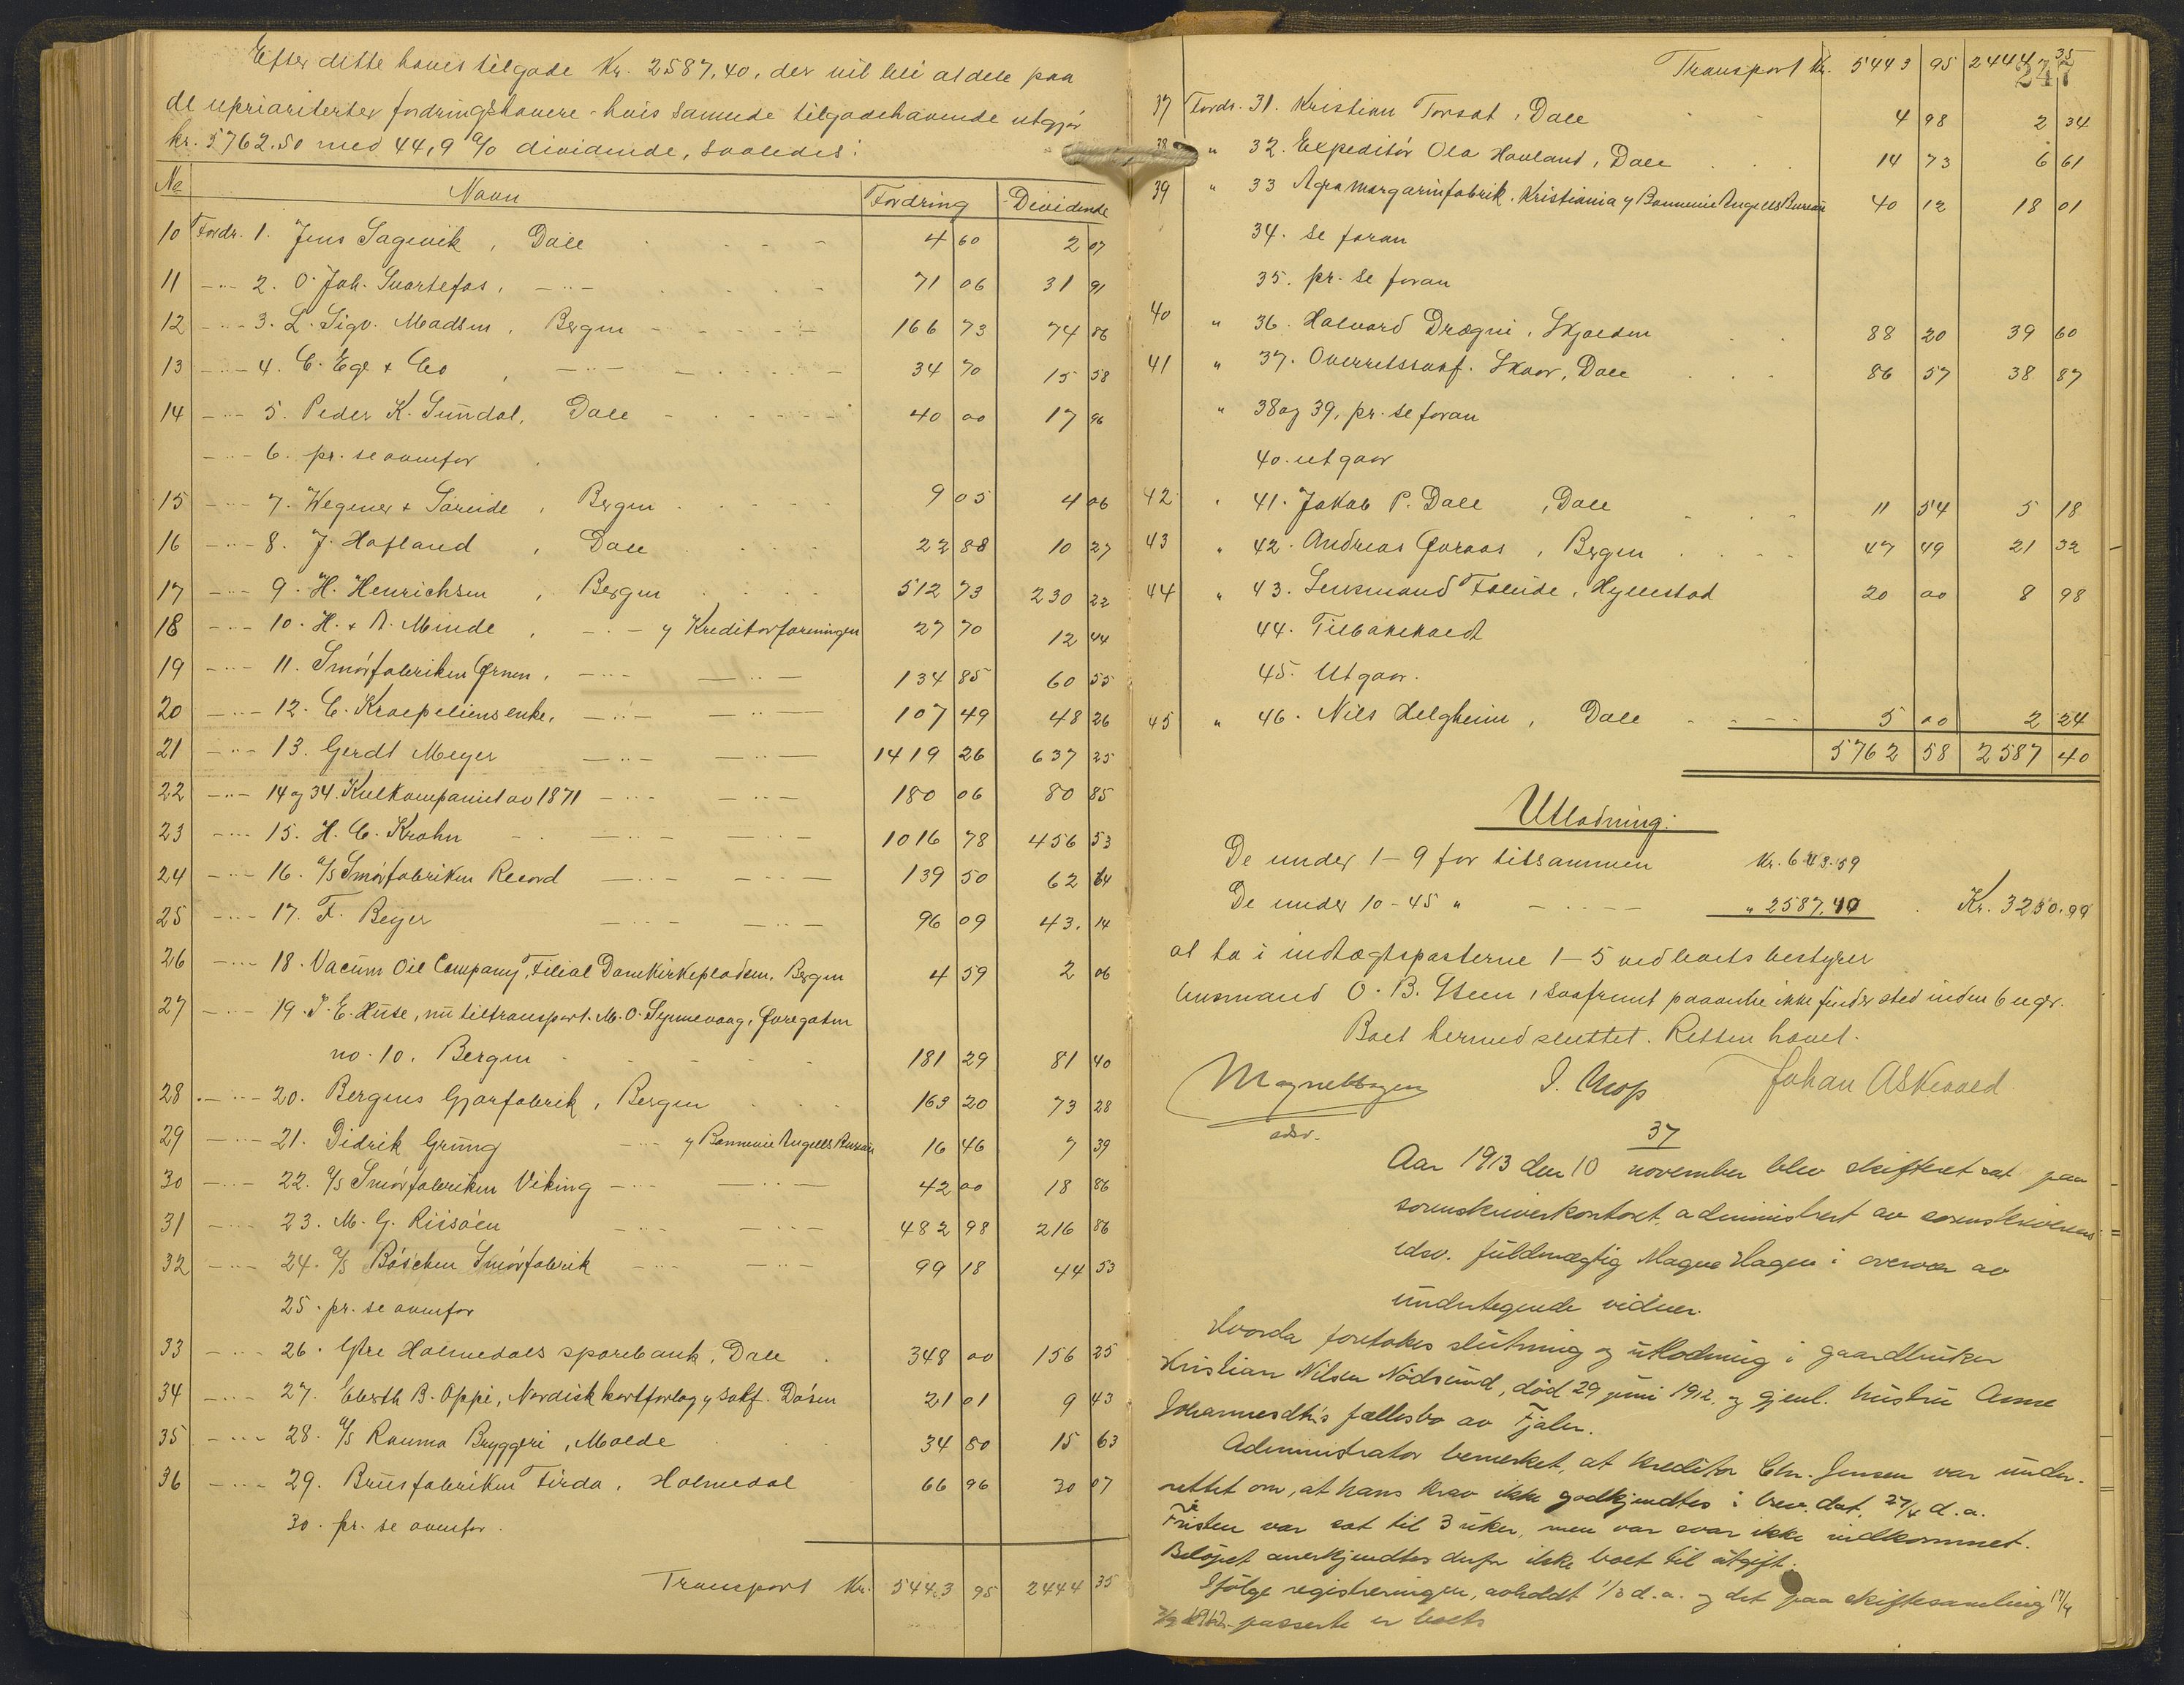 Efter dette haves tilgode Kr. 2587,40, der vil bli at dele paa
de uprioriterter fordringshavere - hvis samlede tilgodehavende utgjør
kr. 5762.50 med 44,9 % dividende, saaledes:
No Navn Fordring Dividende
10 Fordr. 1. Jens Sagevik, Dale 4 60 2 07
11 -"- 2. O. Joh. Svartefos, -"- 71 06 31 91
12 -"- 3. L. Sigv. Madsen, Bergen 166 73 74 86
13 -"- 4. C. Ege & Co, -"- 34 70 15 58
14 -"- 5. Peder K. Sundal, Dale 40 00 17 96
-"- 6. pr. se ovenfor
15 -"- 7. Wegener & Søreide, Bergen 9 05 4 06
16 -"- 8. J. Hafland, Dale 22 88 10 27
17 -"- 9. H. Henrichsen, Bergen 512 73 230 22
18 -"- 10. H. & A. Minde, -"- y Kreditorforeningen 27 70 12 44
19 -"- 11. Smørfabriken Ørnen, -"- -"- 134 85 60 55
20 -"- 12. C. Kraepeliens enke, -"- -"- 107 49 48 26
21 -"- 13. Gerdt Meyer -"- -"- 1419 26 637 25
22 -"- 14 og 34. Kulkompaniet av 1871 -"- -"- 180 06 80 85
23 -"- 15. H. C. Krohn -"- -"- 1016 78 456 53
24 -"- 16. A/S Smørfabriken Record -"- -"- 139 50 62 64
25 -"- 17. F. Beyer -"- -"- 96 09 43. 14
26 -"- 18. Vacum Oil Company, Filial Domkirkepladsen, Bergen 4 59 2 06
27 -"- 19. J. E. Huse, nu tiltransport. M. O. Synnevaag, Øvregaten
no. 10. Bergen 181 29 81 40
28 -"- 20. Bergens Gjærfabrik, Bergen 163 20 73 28
29 -"- 21. Didrik Grung -"- y Bonnevie Angells Bureau 16 46 7 39
30 -"- 22. A/S Smørfabriken Viking -"- -"- 42 00 18 86
31 -"- 23. M. G. Riisøen -"- -"- 482 98 216 86
32 -"- 24. A/S Böschen Smørfabrik -"- -"- 99 18 44 53
25. pr. se ovenfor
33 -"- 26. Ytre Holmedals sparebank, Dale 348 00 156 25
34 -"- 27. Eberth B. Oppi, Nordisk kortforlag y sakf. Døsen 21 01 9 43
35 -"- 28. A/S Rauma Bryggeri, Molde 34 80 15 63
36 -"- 29. Brusfabriken Firda, Holmedal 66 96 30 07
30. pr. se ovenfor.
Transport Kr. 5443 95 2444 35
247
Transport Kr. 5443 95 2444 35
37 Fordr. 31. Kristian Torsat, Dale 4 98 2 34
38 " 32. Expeditør Ola Hovland, Dale 14 73 6 61
39 " 33 Agra margarinfabrik. Kristiania y Bonnevie Angells Bureau 40 12 18 01
34. se foran
35. pr. se foran
40 " 36. Halvard Drægni, Skjolden 88 20 39 60
41 " 37. Overretssakf. Skaar, Dale 86 57 38 87
" 38 og 39. pr. se foran
40. utgaar
42 " 41. Jakob P. Dale, Dale 11 54 5 18
43 " 42. Andreas Øvraas, Bergen 47 49 21 32
44 " 43. Lensmand Foleide, Hyllestad 20 00 8 98
44. Tilbakekaldt
45. Utgaar.
45 " 46. Nils Helgheim, Dale 5 00 2 24
5762 58 2587 40
Utlodning:
De under 1-9 for tilsammen Kr. 643.59
De under 10-45 " -"- " 2587,40 Kr. 3230.99
at ta i indtægtsposterne 1-5 ved boets bestyrer
lensmand O. B. Steen, saafremt paaanke ikke finder sted inden 6 uger.
Boet hermed sluttet. Retten hævet.
Magne Hagen Johan Askevold
edsv.
37
Aar 1913 den 10 november blev skifteret sat paa
sorenskriverkontoret, administrert av sorenskriverens
edsv. fuldmægtig Magne Hagen i overvær av
undertegnede vidner.
Hvorda foretokes slutning og utlodning i gaardbruker
Kristian Nilsen Nødsund, død 29 juni 1912, og gjenl. hustru Anne
Johannesdtr's fællesbo av Fjaler.
Administrator bemerket, at kreditor Chr. Jensen var under-
rettet om, at hans krav ikke godkjendtes i brev dat. 27/4 d.a.
Fristen var sat til 3 uker, men var svar ikke indkommet.
Beløpet anerkjendtes derfor ikke boet til utgift.
Ifølge registreringen, avholdt 1/3 d.a. og det paa skiftesamling 17/4
passerte er boets